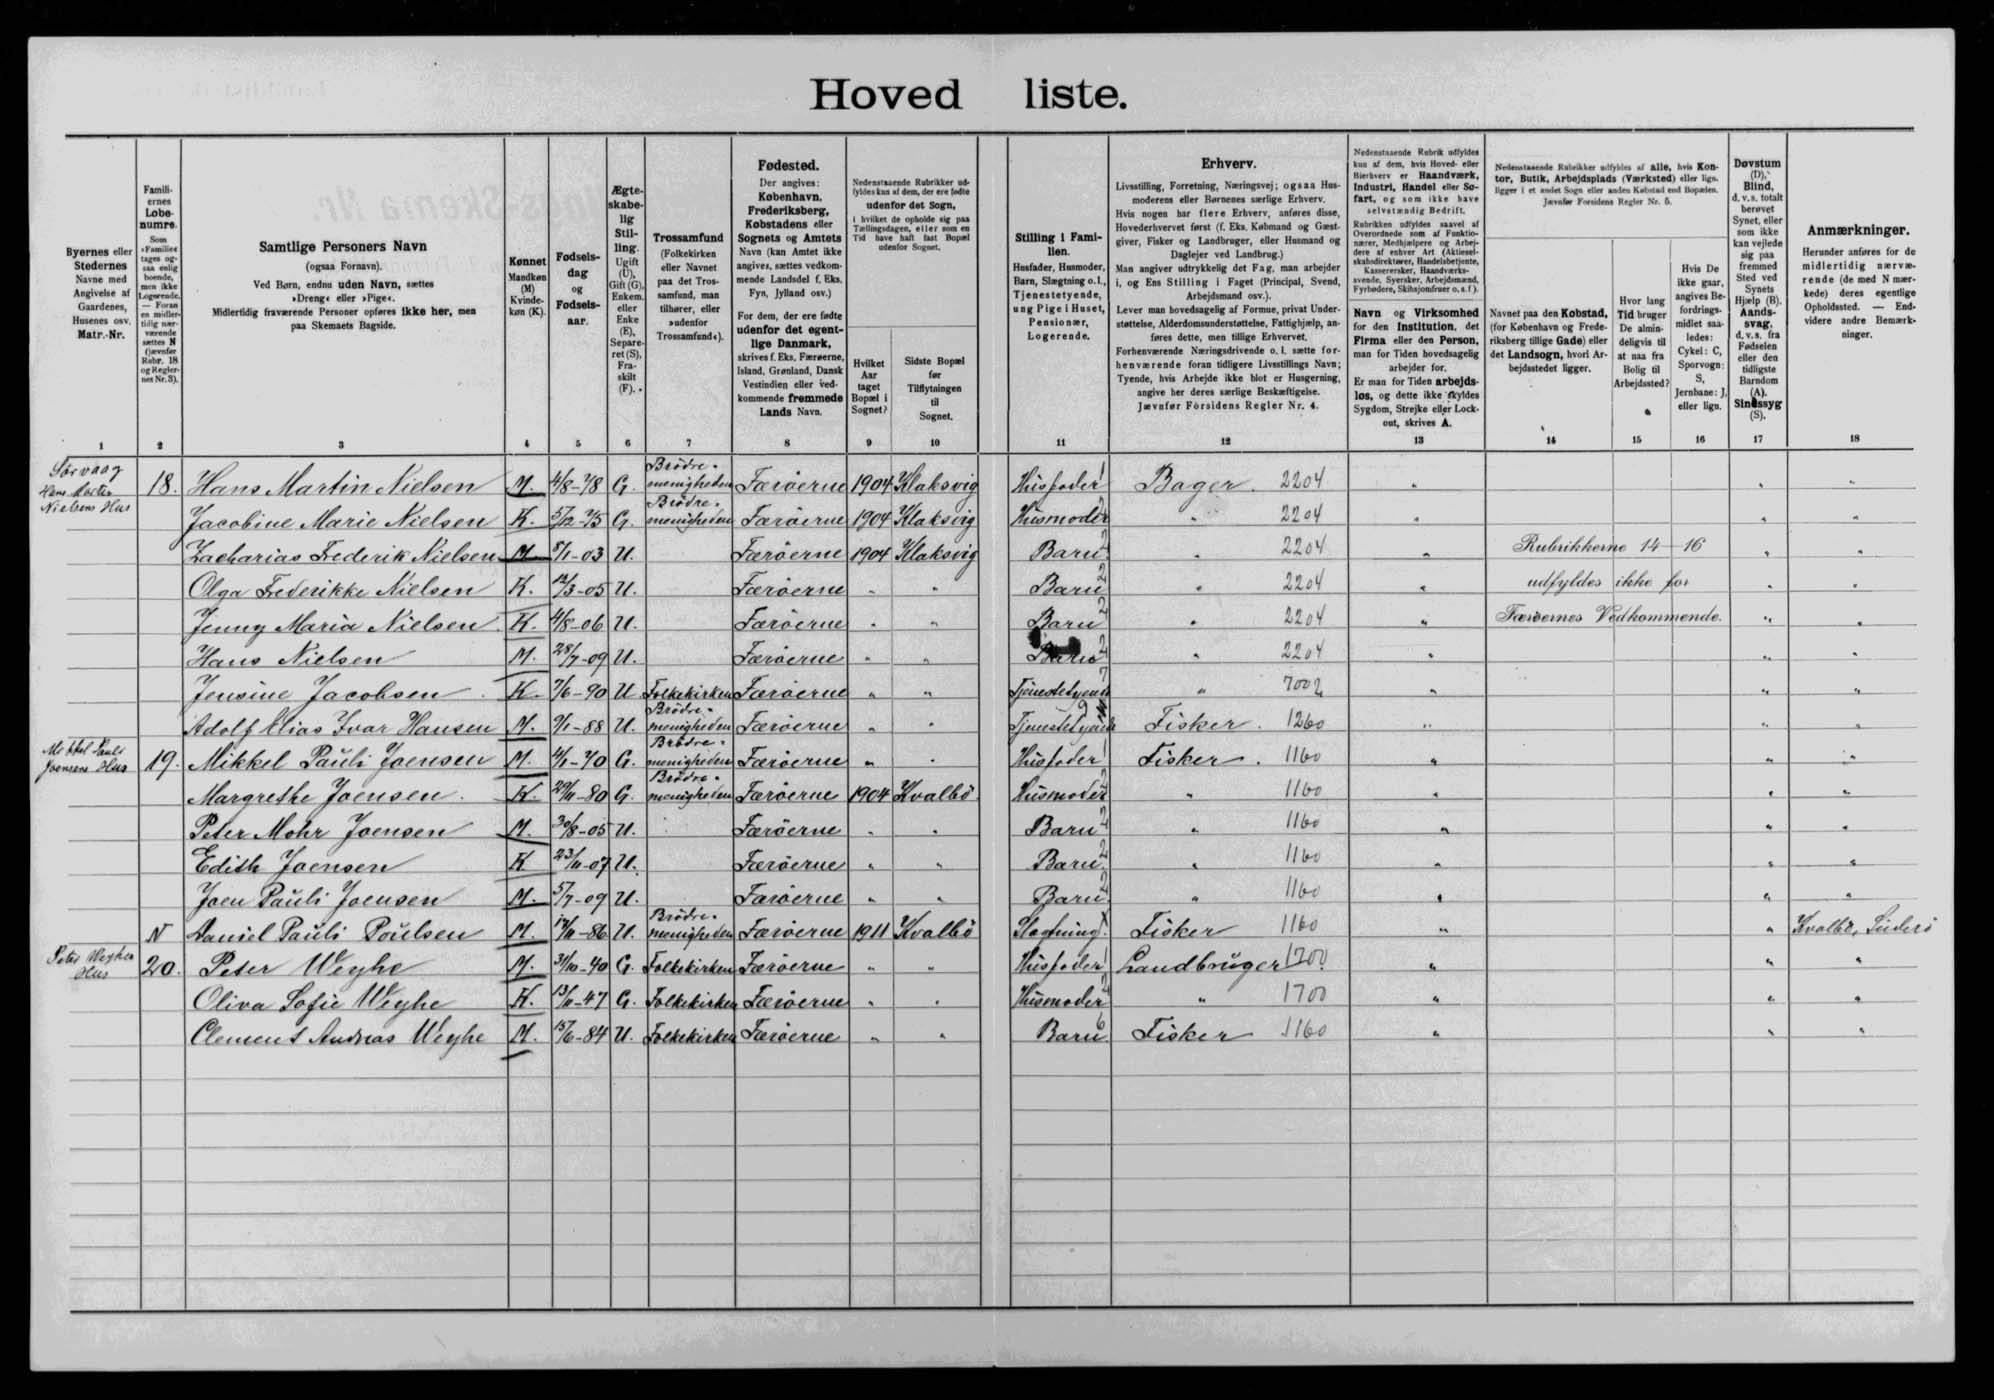 Hovedliste.
Byernes eller Stedernes Navne med Angivelse af Gaardenes, Husenes osv. Matr.-Nr.
Familiernes Løbenumre. Som »Familie« tages ogsaa enlig boende, men ikke Logerende. — Foran en midlertidig nærværende sættes N (jævnfør Rubr. 18 og Reglernes Nr. 3).
Samtlige Personers Navn (ogsaa Fornavn). Ved Børn, endnu uden Navn, sættes »Dreng« eller »Pige«. Midlertidig fraværende Personer opføres ikke her, men paa Skemaets Bagside.
Kønnet Mandkøn (M) Kvindekøn (K).
Fødselsdag og Fødselsaar.
Ægteskabelig Stilling. Ugift (U), Gift (G), Enkem. eller Enke (E), Separeret (S), Fraskilt (F).
Trossamfund (Folkekirken eller Navnet paa det Trossamfund, man tilhører, eller »udenfor Trossamfund«).
Fødested. Der angives: København, Frederiksberg, Købstadens eller Sognets og Amtets Navn (kan Amtet ikke angives, sættes vedkommende Landsdel f. Eks. Fyn, Jylland osv.) For dem, der ere fødte udenfor det egentlige Danmark, skrives f. Eks. Færøerne, Island, Grønland, Dansk Vestindien eller vedkommende fremmede Lands Navn.
Nedenstaaende Rubrikker udfyldes kun af dem, der ere fødte udenfor det Sogn, i hvilket de opholde sig paa Tællingsdagen, eller som en Tid have haft fast Bopæl udenfor Sognet.
Hvilket Aar taget Bopæl i Sognet?
Sidste Bopæl før Tilflytningen til Sognet.
Stilling i Familien. Husfader, Husmoder, Barn, Slægtning o. l., Tjenestetyende, ung Pige i Huset, Pensionær, Logerende.
Erhverv. Livsstilling, Forretning, Næringsvej; ogsaa Husmoderens eller Børnenes særlige Erhverv. Hvis nogen har flere Erhverv, anføres disse, Hovederhvervet først (f. Eks. Købmand og Gæstgiver, Fisker og Landbruger, eller Husmand og Daglejer ved Landbrug.) Man angiver udtrykkelig det Fag, man arbejder i, og Ens Stilling i Faget (Principal, Svend, Arbejdsmand osv.). Lever man hovedsagelig af Formue, privat Understøttelse, Alderdomsunderstøttelse, Fattighjælp, anføres dette, men tillige Erhvervet. Forhenværende Næringsdrivende o. l. sætte forhenværende foran tidligere Livsstillings Navn; Tyende, hvis Arbejde ikke blot er Husgerning, angive her deres særlige Beskæftigelse. Jævnfør Forsidens Regler Nr. 4.
Nedenstaaende Rubrik udfyldes kun af dem, hvis Hoved- eller Bierhverv er Haandværk, Industri, Handel eller Søfart, og som ikke have selvstændig Bedrift. Rubrikken udfyldes saavel af Overordnede som af Funktionærer, Medhjælpere og Arbejdere af enhver Art (Aktieselskabsdirektører, Handelsbetjente, Kasserersker, Haandværkssvende, Syersker, Arbejdsmænd, Fyrbødere, Skibsjomfruer o. s. f.). Navn og Virksomhed for den Institution, det Firma eller den Person, man for Tiden hovedsagelig arbejder for. Er man for Tiden arbejdsløs, og dette ikke skyldes Sygdom, Strejke eller Lockout, skrives A.
Nedenstaaende Rubrikker udfyldes af alle, hvis Kontor, Butik, Arbejdsplads (Værksted) eller lign. ligger i et andet Sogn eller anden Købstad end Bopælen. Jævnfør Forsidens Regler Nr. 5.
Navnet paa den Købstad, (for København og Frederiksberg tillige Gade) eller det Landsogn, hvori Arbejdsstedet ligger.
Hvor lang Tid bruger De almindeligvis til at naa fra Bolig til Arbejdssted?
Hvis De ikke gaar, angives Befordringsmidlet saaledes: Cykel: C, Sporvogn: S, Jernbane: J, eller lign.
Døvstum (D), Blind, d. v. s. totalt berøvet Synet, eller som ikke kan vejlede sig paa fremmed Sted ved Synets Hjælp (B). Aandssvag, d. v. s. fra Fødselen eller den tidligste Barndom (A). Sindssyg (S).
Anmærkninger. Herunder anføres de for de midlertidig nærværende (de med N mærkede) deres egentlige Opholdssted. — Endvidere andre Bemærkninger.
1 2 3 4 5 6 7 8 9 10 11 12 13 14 15 16 17 18
Sørvaag Hans Martin Nielsens Hus 18. Hans Martin Nielsen M. 4/8-78 G. Brödremenigheden Færöerne 1904 Klaksvig Husfader 1 Bager. 2204 " " "
Jacobine Marie Nielsen K. 5/12-75 G. Brödremenigheden Færöerne 1904 Klaksvig Husmoder 2 " 2204 " " "
Zacharias Frederik Nielsen M 8/1-03 U. Færöerne 1904 Klaksvig Barn 2 " 2204 " Rubrikkerne 14-16 " "
Olga Frederikke Nielsen K. 12/3-05 U. Færöerne " " Barn 2 " 2204 " udfyldes ikke for " "
Jenny Maria Nielsen. K. 4/8-06 U. Færöerne " " Barn 2 " 2204 " Færöernes Vedkommende. " "
Hans Nielsen M. 28/7-09 U. Færöerne " " Barn 2 " 2204 " " "
Jensine Jacobsen. K. 7/6-90 U Folkekirken Færöerne " " Tjenestetyende 7 " 7002 " " "
Adolf Elias Ivar Hansen M. 9/1-88 U. Brödremenigheden Færöerne " " Tjenestetyende Fisker. 1260 " " "
Mikkel Pauli Joensens Hus 19. Mikkel Pauli Joensen M. 4/1-70 G. Brödremenigheden Færöerne " " Husfader 1 Fisker. 1160 " " "
Margrethe Joensen. K. 29/11-80 G. Brödremenigheden Færöerne 1904 Kvalbö Husmoder 2 " 1160 " " "
Peter Mohr Joensen M. 30/8-05 U. Færöerne " " Barn 2 " 1160 " " "
Edith Joensen K 23/11-07 U. Færöerne " " Barn 2 " 1160 " " "
Joen Pauli Joensen M. 5/7-09 U. Færöerne " " Barn 2 " 1160 " " "
N Daniel Pauli Poulsen M. 17/11-86 U. Brödremenigheden Færöerne 1911 Kvalbö Slægtning Fisker 1160 " " Kvalbö, Süderö
Peter Weyhes Hus 20. Peter Weyhe M. 31/10-40 G. Folkekirken Færöerne " " Husfader 1 Landbruger 1700 " " "
Oliva Sofie Weyhe K. 13/11-47 G. Folkekirken Færöerne " " Husmoder 2 " 1700 " " "
Clement Andreas Weyhe M. 15/6-84 U. Folkekirken Færöerne " " Barn 6 Fisker 1160 " " "